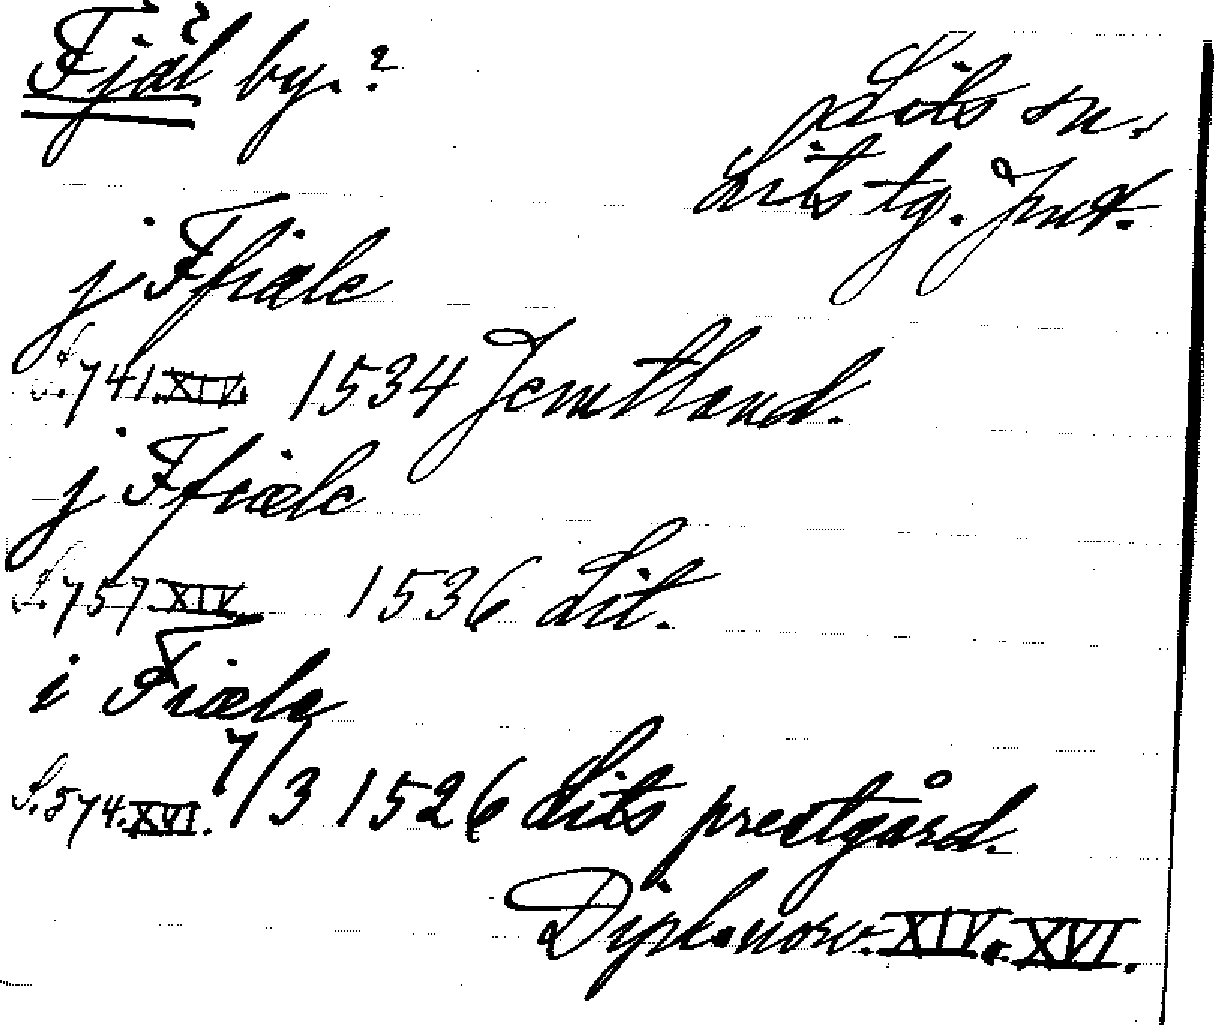 Fjäl by.?
Lits sn.
Lits tg. Jmt.
j Ffiæle
S. 741. XIV. 1534 Jemtland.
j Ffiæle
S. 757 XIV. 1536 Lit.
i Fiæle
S. 574. XVI. 7/3 1526 Lits prestgård.
Dipl. norv. XIV. o. XVI.